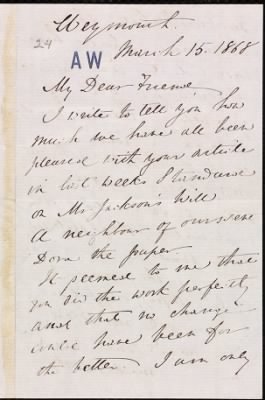 Weymouth.
24
AW
March 15. 1868
My Dear Friend,
I write to tell you how
much we have all been
pleased with your article
in last weeks Standard
on Mr Jackson's Will
A neighbour of ours
the paper.
It seemed to me that
you did the work perfectly
and that no change
could have been for
the better. I am only